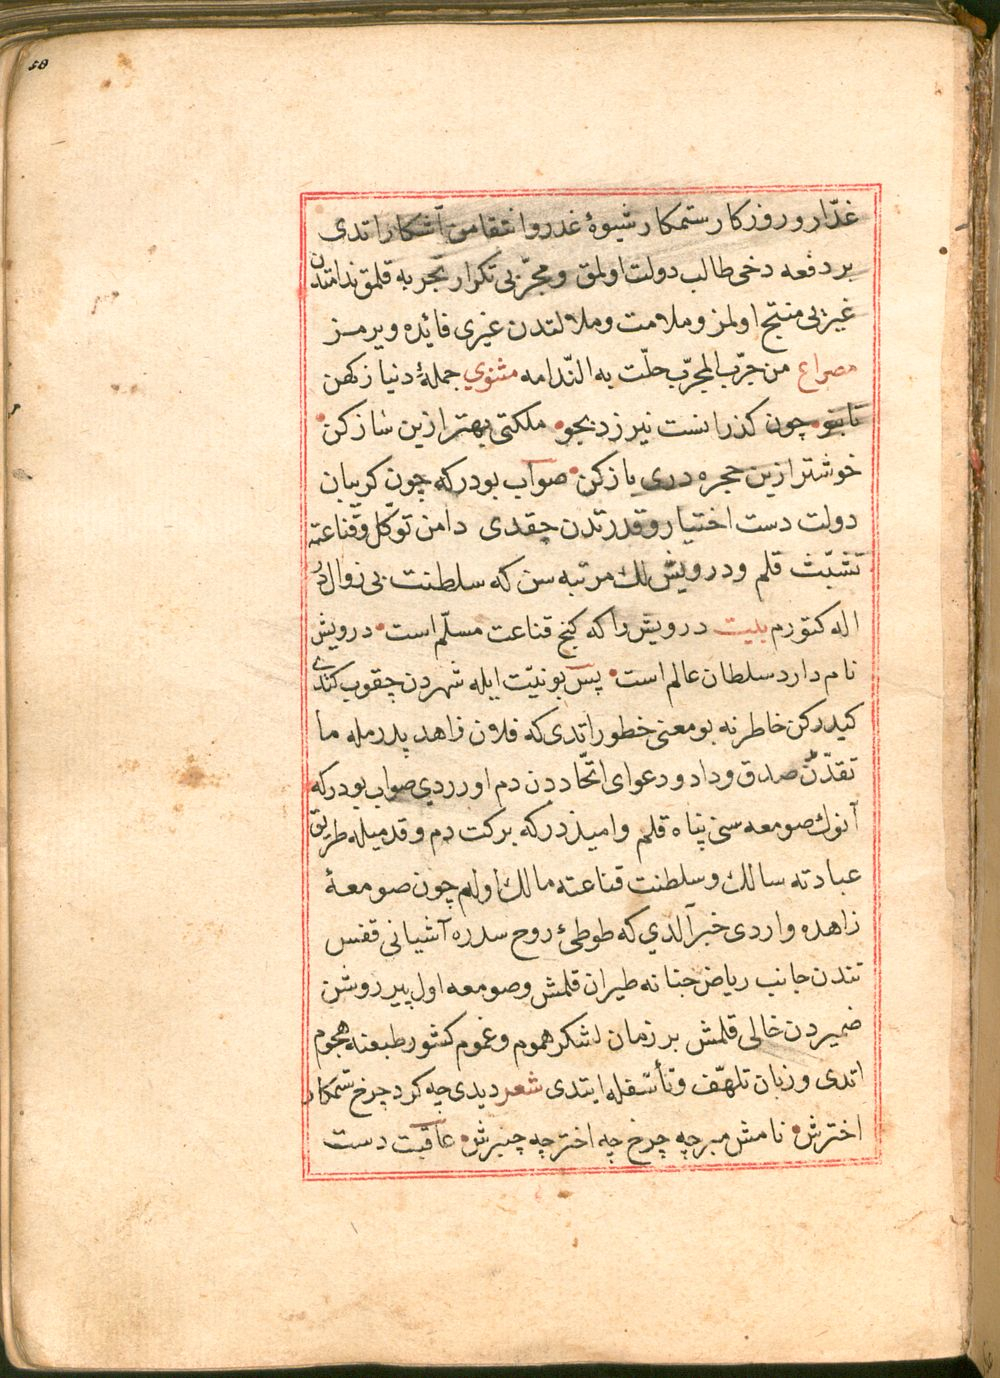 58
غدّار و روزكار ستمكار شيوۀ غدر و انتقامن آشكار اتدى
بر دفعه دخى طالب دولت اولمق و مجرّبى تكرار تجربه قلمق ندامتدن
غيرى منتج اولمز و ملامت و ملالتدن غيرى فائده ويرمز
مصراع من جرّب المجرّب حلّت به النّدامه مثنوي جملۀ دنيا ز كهن
تا بنو چون كذرانست نيرزد بجو ملكتى بهتر ازين ساز كن
خوشتر ازين حجره درى باز كن صواب بودر كه چون كريبان
دولت دست اختيار و قدرتدن چقدى دامن توكّل و قناعته
تشبّث قلم و درويشلك مرتبه سن كه سلطنت بى زوالدر
اله كتورم بيت درويش را كه كنج قناعت مسلّم است درويش
نام دارد سلطان عالم است پس بو نيّت ايله شهردن چقوب كندى
كيدركن خاطرنه بو معنى خطور اتدى كه فلان زاهد پدرمله ما
تقدّن صدق و داد و دعواى اتّحاددن دم اورردي صواب بودر كه
آنوك صومعه سنى پناه قلم و اميذدر كه بركت دم و قدميله طريق
عبادته سالك و سلطنت قناعته مالك اولم چون صومعۀ
زاهده واردى خبر آلدي كه طوطئ روح سدره آشيانى قفس
تندن جانب رياض جنانه طيران قلمش و صومعه اول پير روشن
ضميردن خالى قلمش بر زمان لشكر هموم و غموم كشور طبعنه هجوم
اتدى و زبان تلهّف و تأسّفله ايتدى شعر ديدى چه كرد چرخ ستمكار
اخترش نامش مبر چه چرخ چه اختر چه چنبرش عاقبت دست